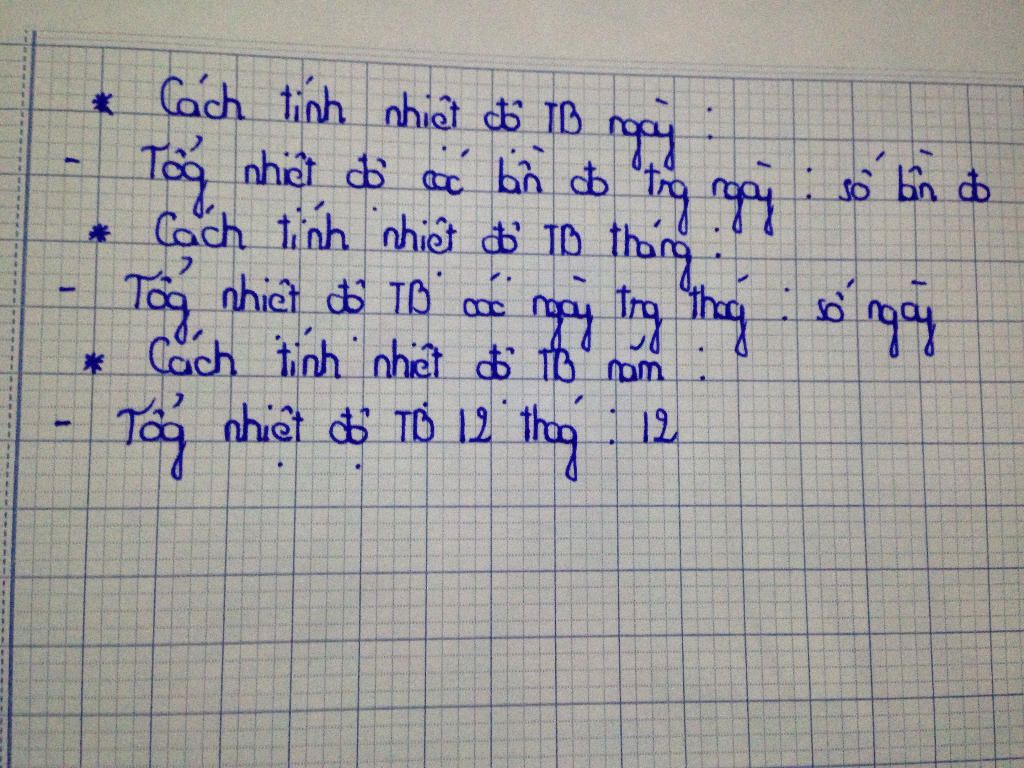 * Cách tính nhiệt độ TB ngày :
- Tổg nhiệt độ các lần đo trg ngày : số lần đo
* Cách tính nhiệt độ TB tháng :
- Tổg nhiệt độ TB các ngày trg thág : số ngày
* Cách tính nhiệt độ TB năm :
- Tổg nhiệt độ TB 12 thág : 12